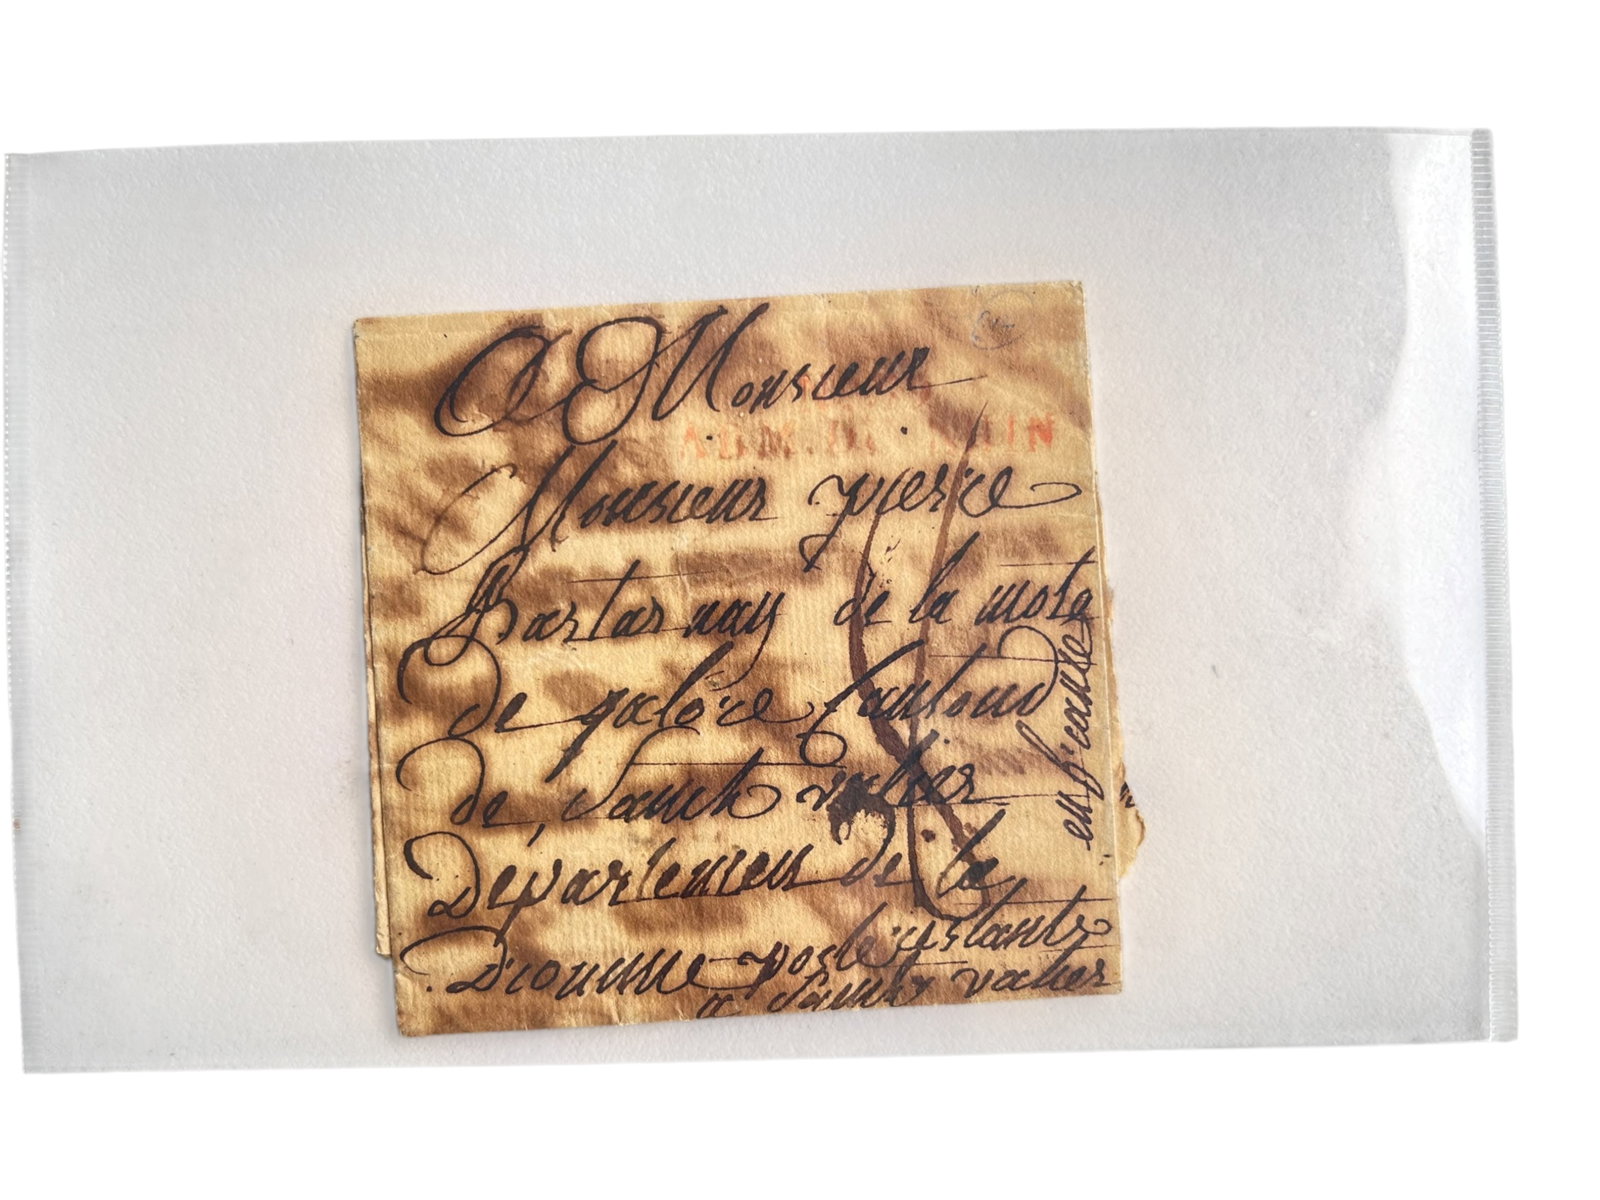 A Monsieur
Monsieur pierre
Bartarnay de la mota
De galore Cantond
De Sainct valier
Departemen de la
Droumme poste restante
a Sainct valier
en france